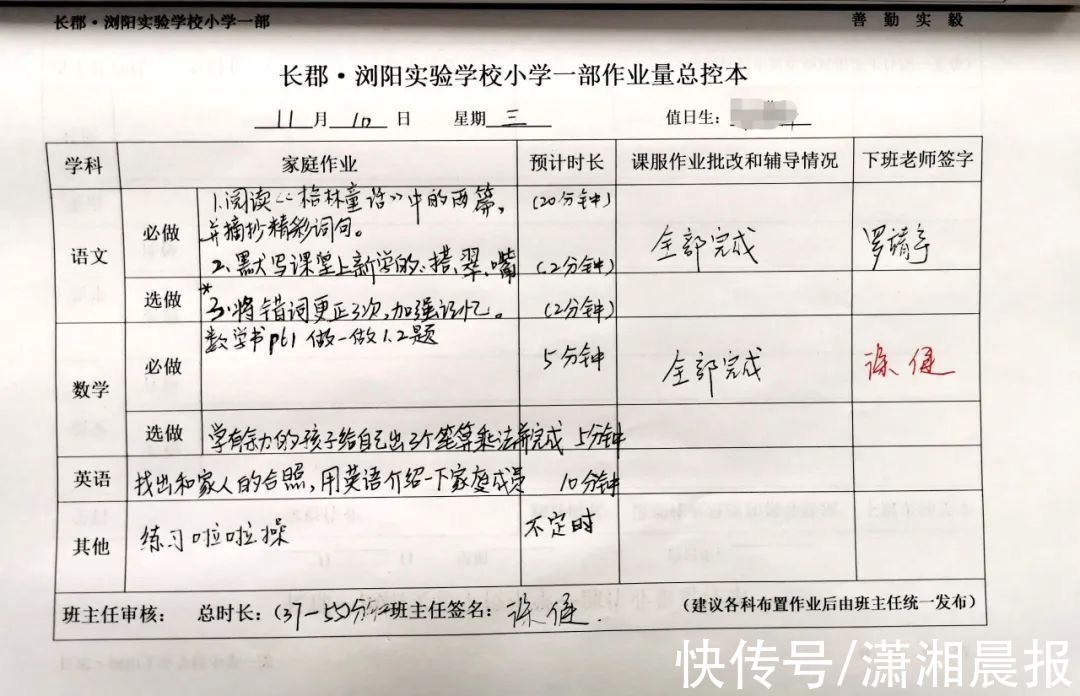 长郡·浏阳实验学校小学一部
善 勤 实 毅
长郡·浏阳实验学校小学一部作业量总控本
11月10日 星期三 值日生:
学科 家庭作业 预计时长 课服作业批改和辅导情况 下班老师签字
语文
必做
1.阅读《格林童话》中的两篇,
并摘抄精彩词句。
(20分钟)
2、默写课堂上新学的:搭、翠、嘴
(2分钟)
全部完成
选做
*3.将错词更正3次,加强记忆。
(2分钟)
数学
必做
数学书p61 做一做1.2题
5分钟
全部完成
选做
学有余力的孩子给自己出3个笔算乘法并完成 5分钟
英语
找出和家人的合照,用英语介绍一下家庭成员
10分钟
其他
练习啦啦操
不定时
班主任审核: 总时长:(37-55)分钟 班主任签名: (建议各科布置作业后由班主任统一发布)
快传号/潇湘晨报